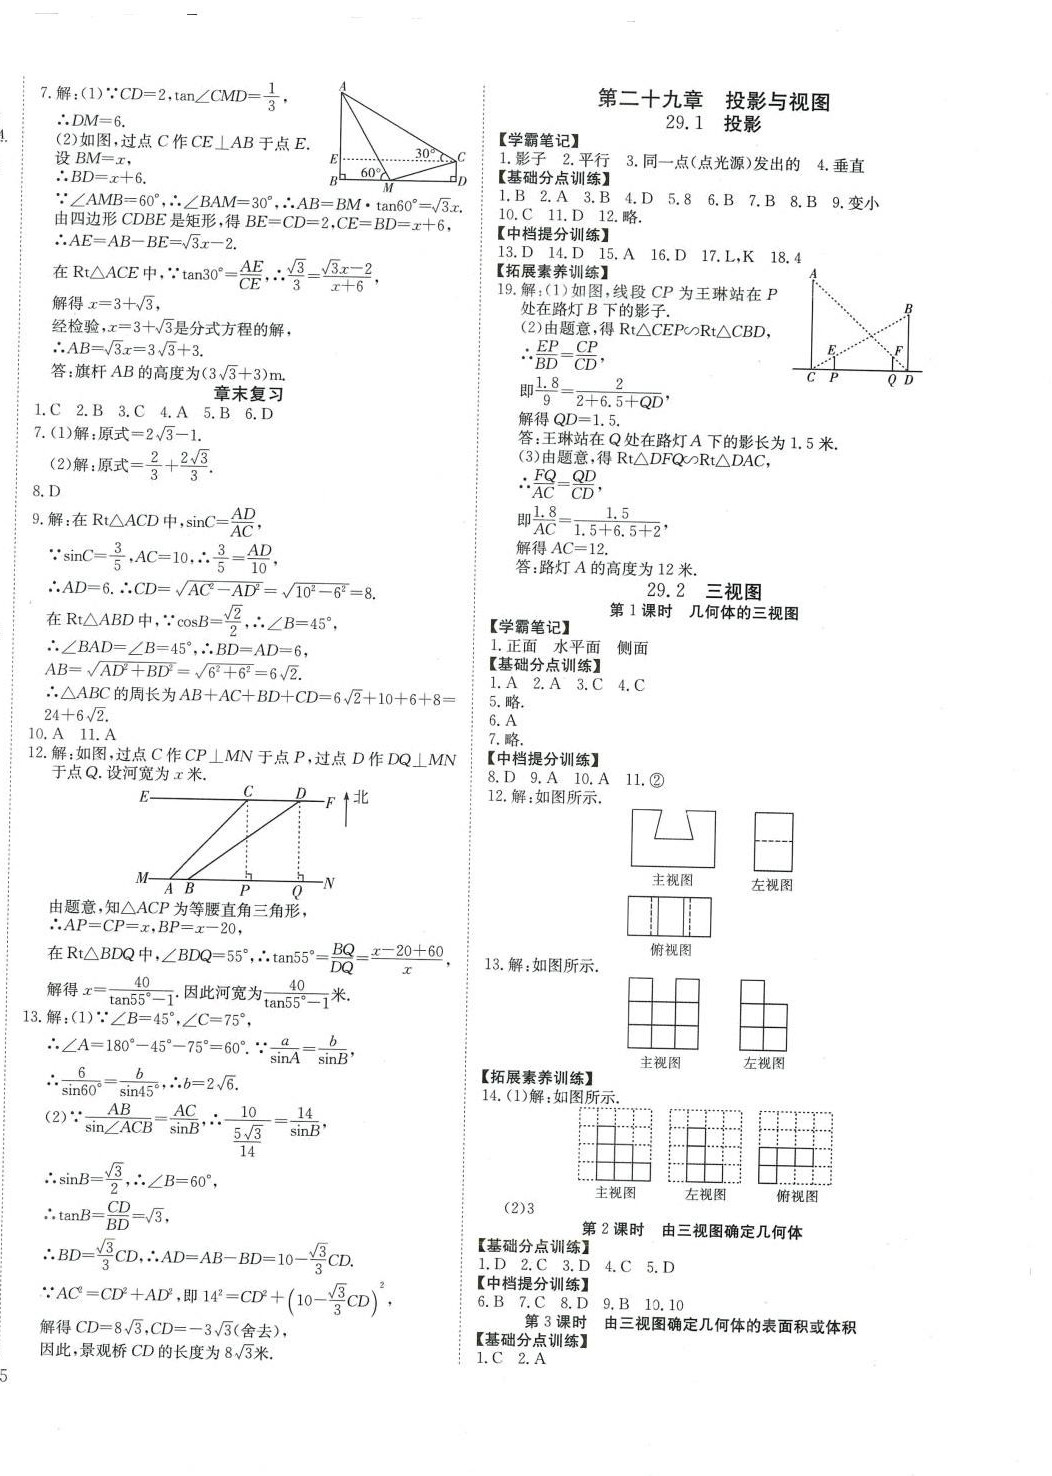 7. 解:(1)∵CD=2,tan∠CMD=1/3,
∴DM=6.
(2)如图,过点 C 作 CE⊥AB 于点 E.
设 BM=x,
∴BD=x+6.
∵∠AMB=60°,∴∠BAM=30°,∴AB=BM·tan60°=√3x.
由四边形 CDBE 是矩形,得 BE=CD=2,CE=BD=x+6,
∴AE=AB-BE=√3x-2.
在 Rt△ACE 中,∵tan30°=AE/CE,∴√3/3=(√3x-2)/(x+6),
解得 x=3+√3,
经检验,x=3+√3是分式方程的解,
∴AB=√3x=3√3+3.
答:旗杆 AB 的高度为(3√3+3)m.
A
E 30° C
B 60° M D
章末复习
1. C 2. B 3. C 4. A 5. B 6. D
7. (1)解:原式=2√3-1.
(2)解:原式=2/3+2√3/3.
8. D
9. 解:在 Rt△ACD 中,sinC=AD/AC,
∵sinC=3/5,AC=10,∴3/5=AD/10,
∴AD=6.∴CD=√(AC²-AD²)=√(10²-6²)=8.
在 Rt△ABD 中,∵cosB=√2/2,∴∠B=45°,
∴∠BAD=∠B=45°,∴BD=AD=6,
AB=√(AD²+BD²)=√(6²+6²)=6√2.
∴△ABC 的周长为 AB+AC+BD+CD=6√2+10+6+8=
24+6√2.
10. A 11. A
12. 解:如图,过点 C 作 CP⊥MN 于点 P,过点 D 作 DQ⊥MN
于点 Q. 设河宽为 x 米.
E C D F 北
M A B P Q N
由题意,知△ACP 为等腰直角三角形,
∴AP=CP=x,BP=x-20,
在 Rt△BDQ 中,∠BDQ=55°,∴tan55°=BQ/DQ=(x-20+60)/x,
解得 x=40/(tan55°-1).因此河宽为40/(tan55°-1)米.
13. 解:(1)∵∠B=45°,∠C=75°,
∴∠A=180°-45°-75°=60°.∵a/sinA=b/sinB,
∴6/sin60°=b/sin45°,∴b=2√6.
(2)∵AB/sin∠ACB=AC/sinB,∴10/(5√3/14)=14/sinB,
∴sinB=√3/2,∴∠B=60°,
∴tanB=CD/BD=√3,
∴BD=√3/3CD,∴AD=AB-BD=10-√3/3CD.
∵AC²=CD²+AD²,即 14²=CD²+(10-√3/3CD)²,
解得 CD=8√3,CD=-3√3(舍去),
因此,景观桥 CD 的长度为 8√3米.
5
第二十九章 投影与视图
29.1 投影
【学霸笔记】
1. 影子 2. 平行 3. 同一点(点光源)发出的 4. 垂直
【基础分点训练】
1. B 2. A 3. B 4. D 5. 8 6. B 7. B 8. B 9. 变小
10. C 11. D 12. 略.
【中档提分训练】
13. D 14. D 15. A 16. D 17. L,K 18. 4
【拓展素养训练】
19. 解:(1)如图,线段 CP 为王琳站在 P
处在路灯 B 下的影子.
(2)由题意,得 Rt△CEP∽Rt△CBD,
∴EP/BD=CP/CD,
即1.8/9=2/(2+6.5+QD),
解得 QD=1.5.
答:王琳站在 Q 处在路灯 A 下的影长为 1.5 米.
(3)由题意,得 Rt△DFQ∽Rt△DAC,
∴FQ/AC=QD/CD,
即1.8/AC=1.5/(1.5+6.5+2),
解得 AC=12.
答:路灯 A 的高度为 12 米.
A
B
E F
C P Q D
29.2 三视图
第 1 课时 几何体的三视图
【学霸笔记】
1. 正面 水平面 侧面
【基础分点训练】
1. A 2. A 3. C 4. C
5. 略.
6. A
7. 略.
【中档提分训练】
8. D 9. A 10. A 11. ②
12. 解:如图所示.
主视图 左视图
俯视图
13. 解:如图所示.
主视图 左视图
【拓展素养训练】
14. (1)解:如图所示.
主视图 左视图 俯视图
(2)3
第 2 课时 由三视图确定几何体
【基础分点训练】
1. D 2. C 3. D 4. C 5. D
【中档提分训练】
6. B 7. C 8. D 9. B 10. 10
第 3 课时 由三视图确定几何体的表面积或体积
【基础分点训练】
1. C 2. A